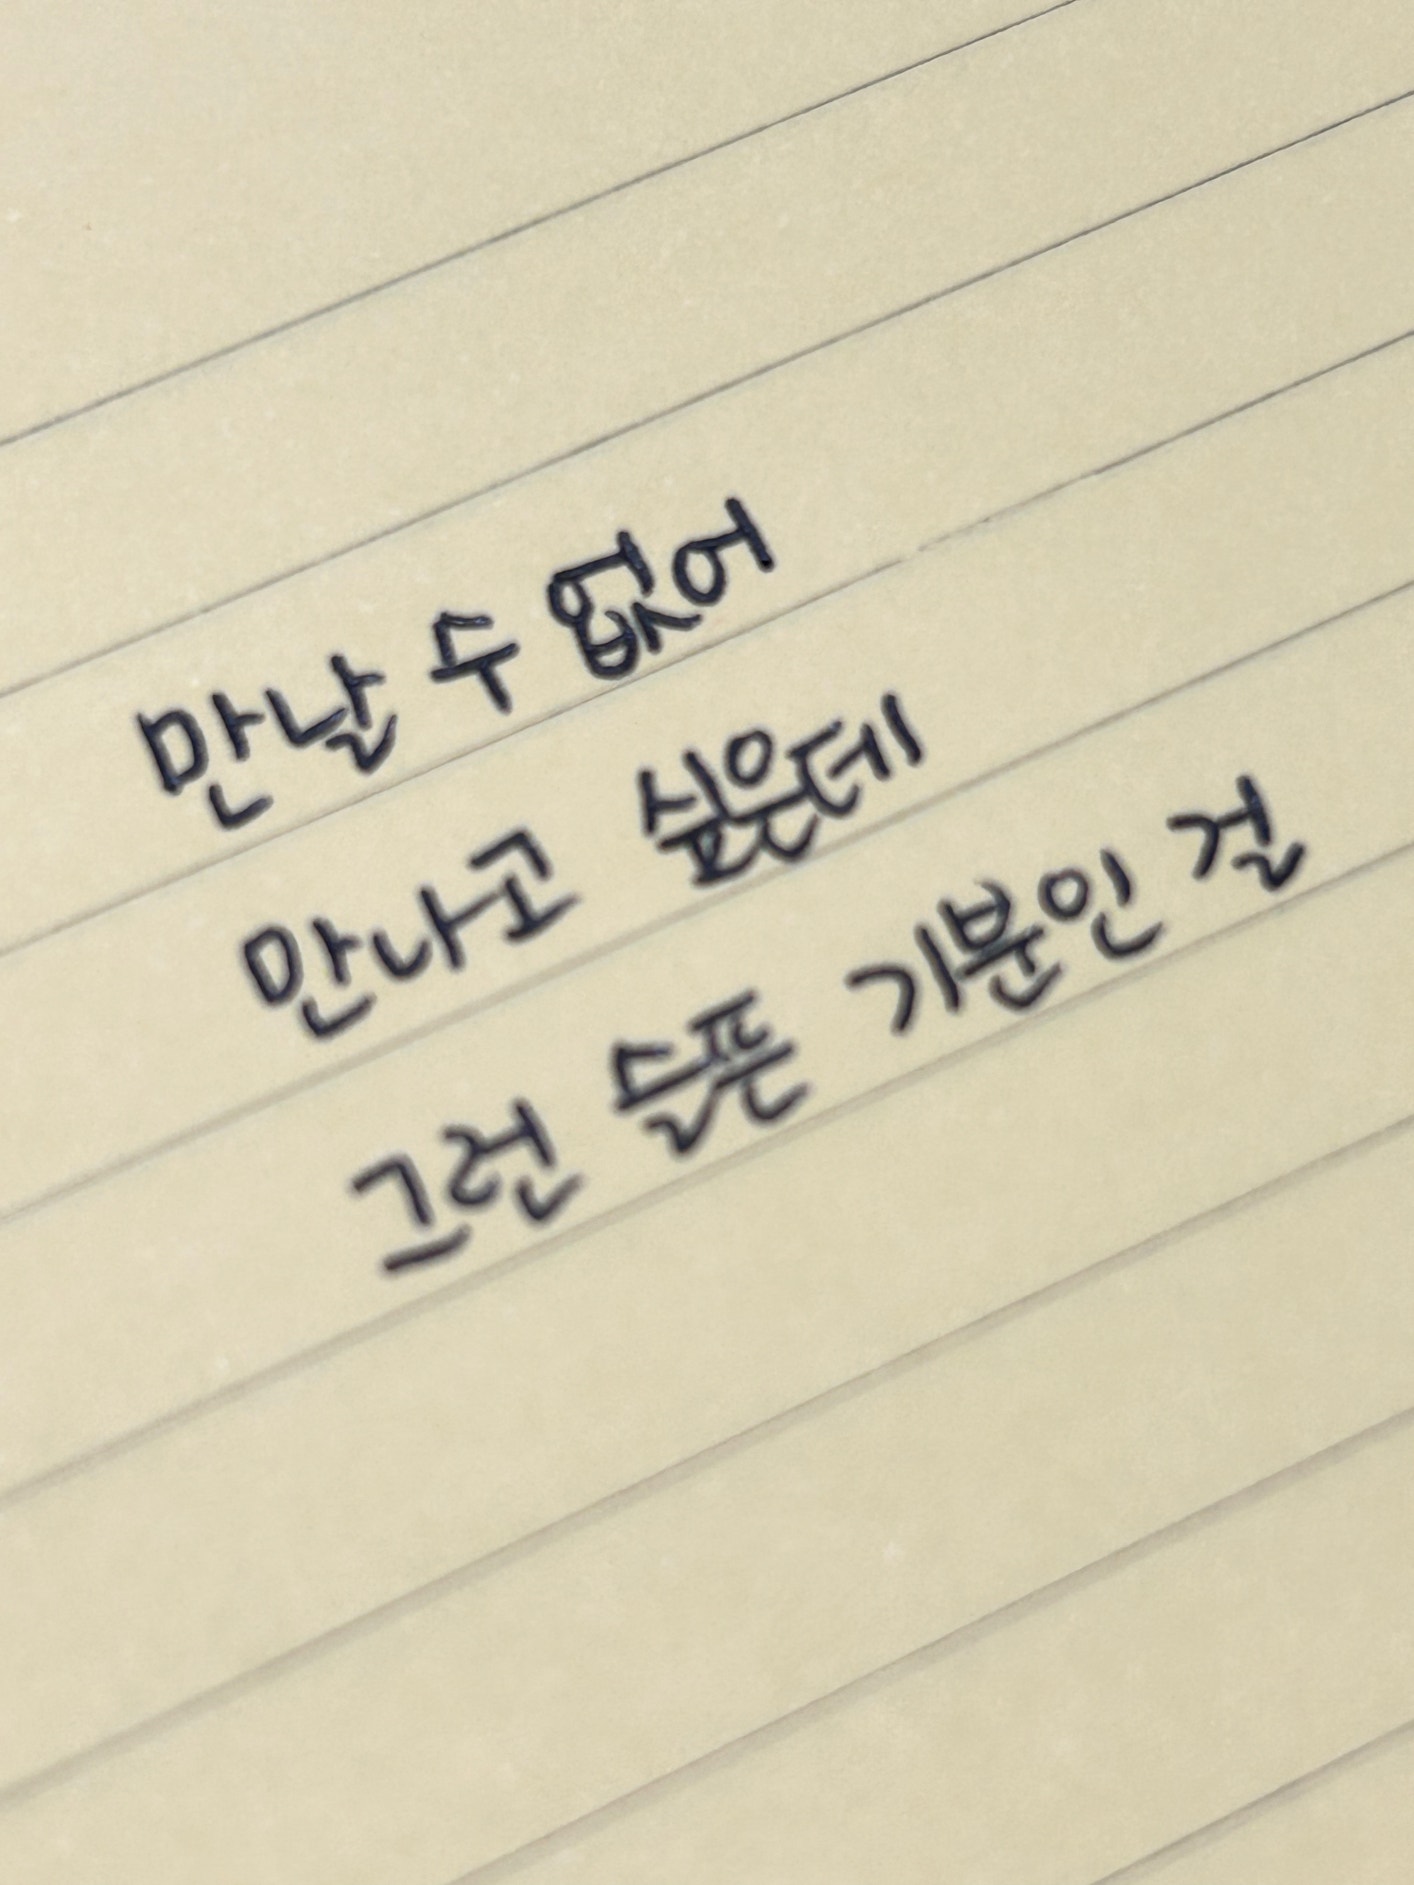 만날 수 없어
만나고 싶은데
그런 슬픈 기분인 걸